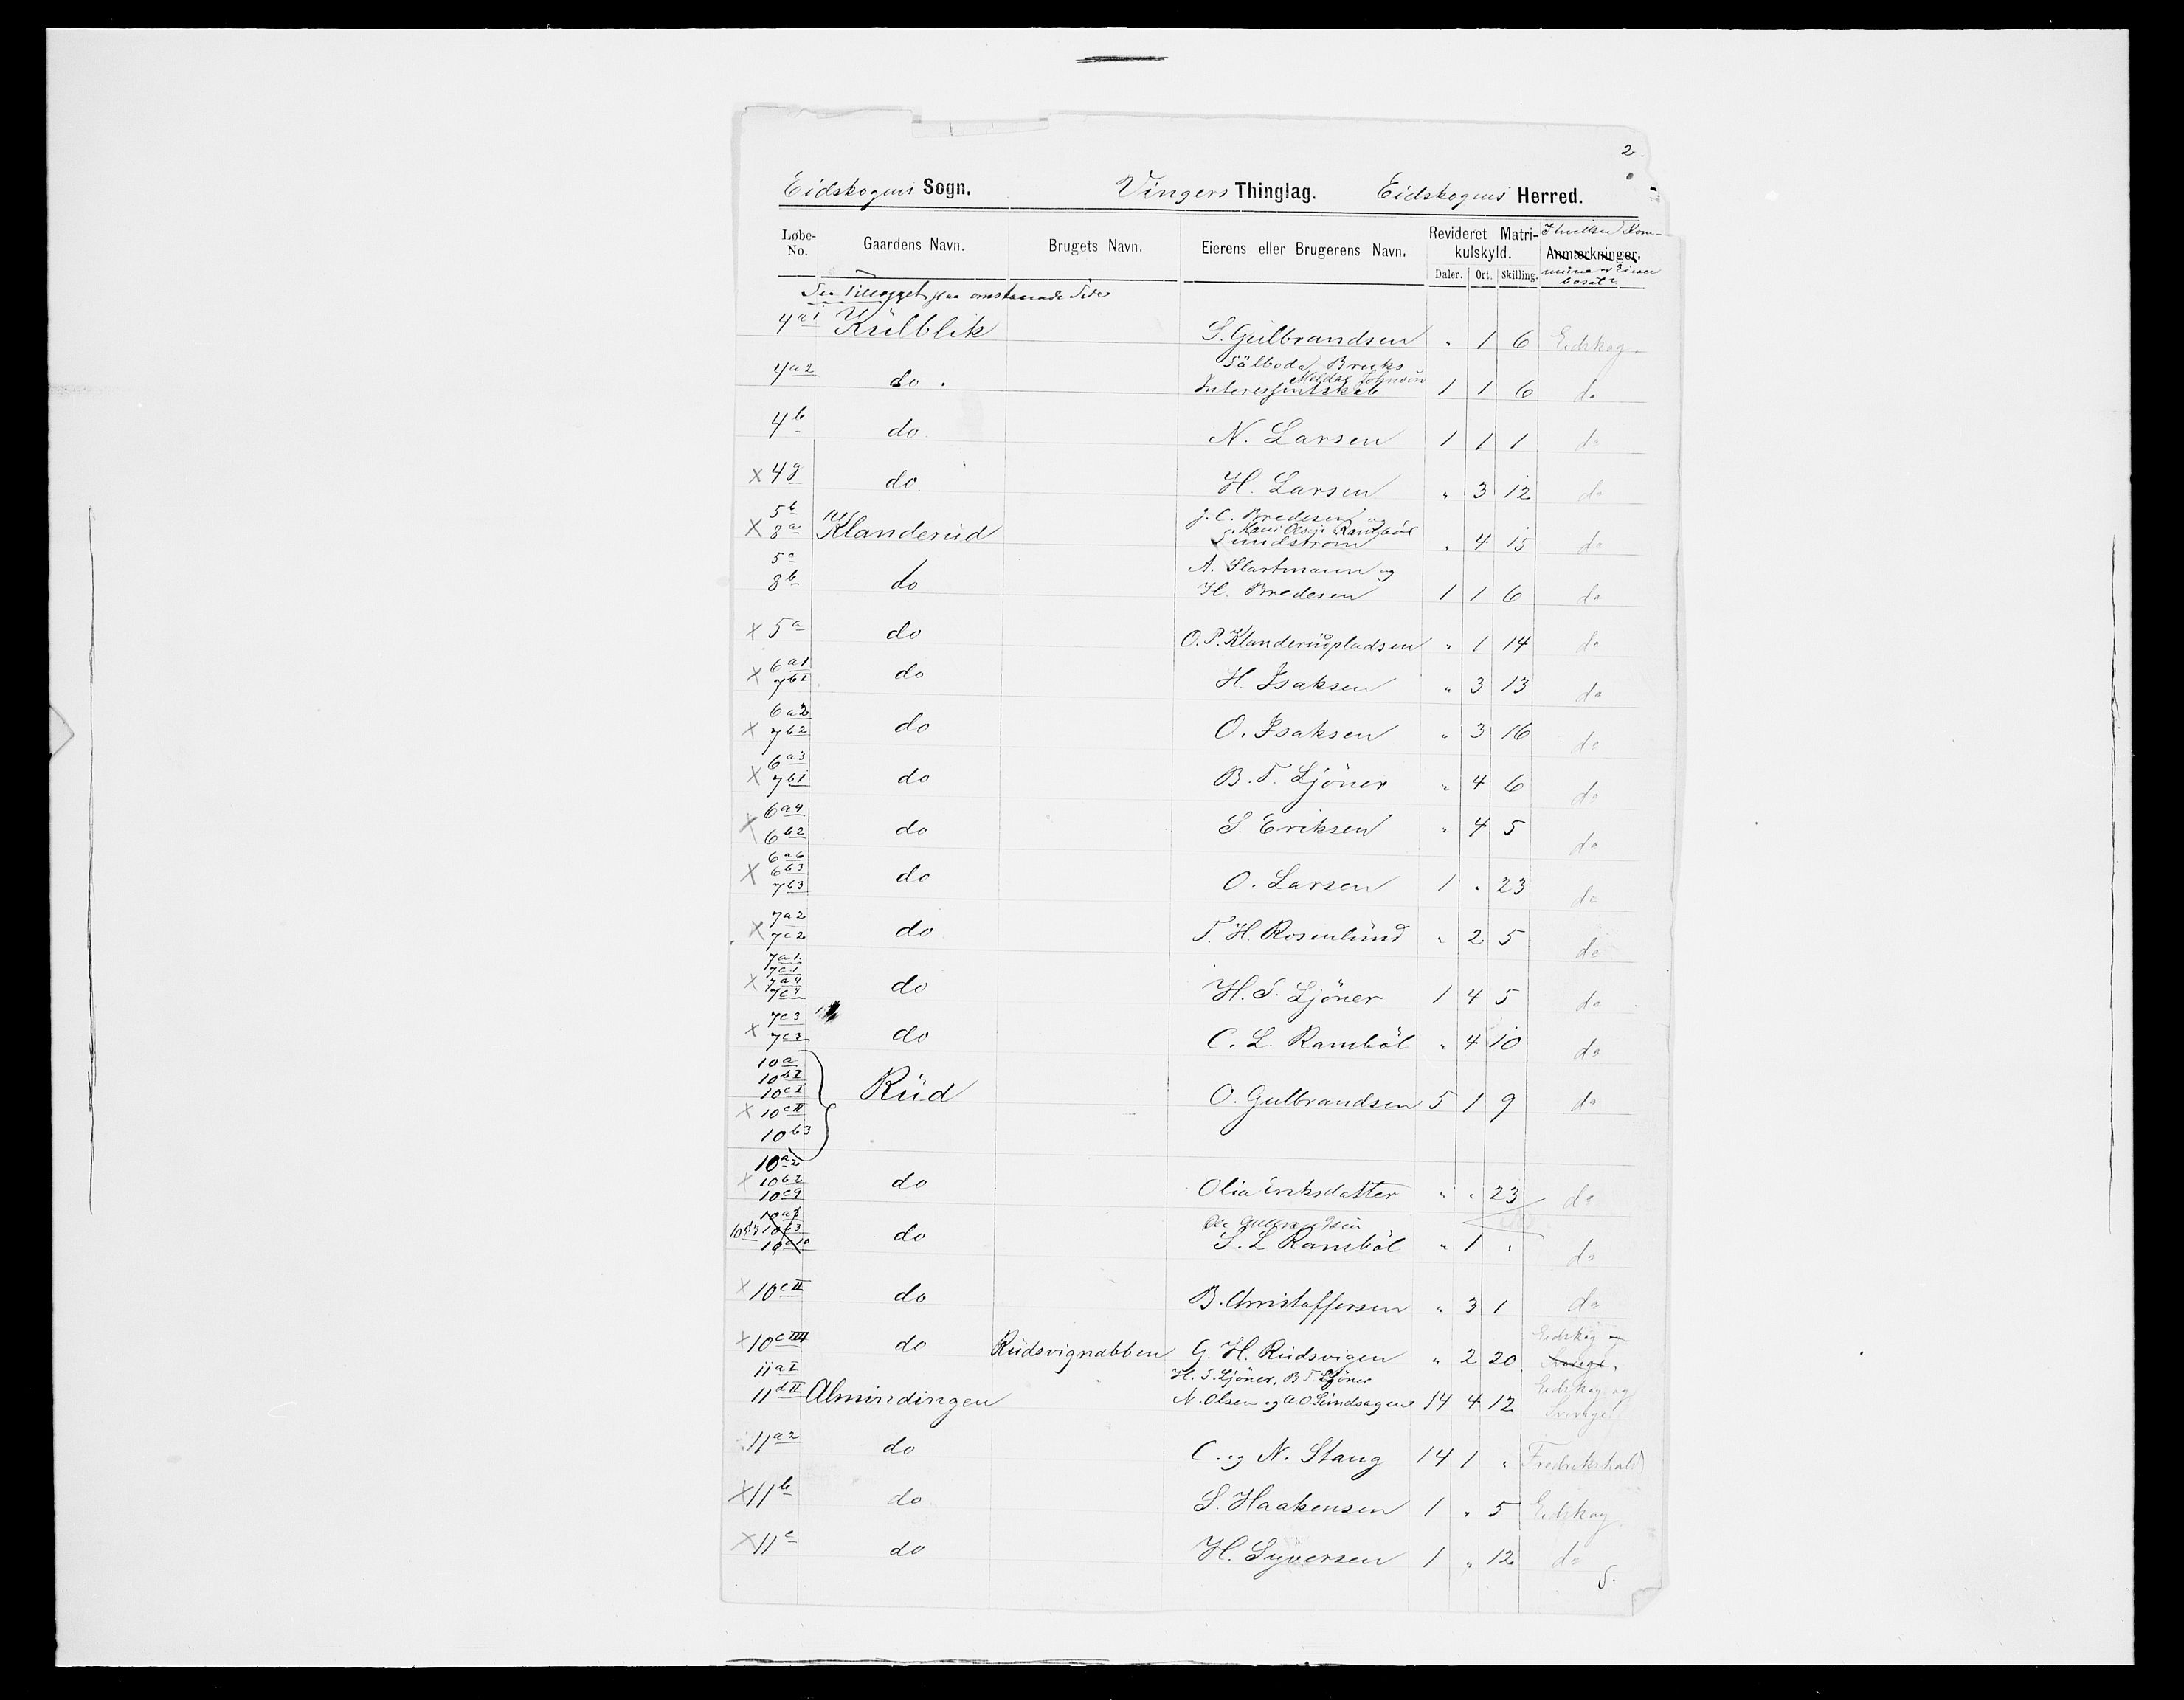 2.
Eidskogens Sogn. Vingers Thinglag. Eidskogens Herred.
Løbe-No. Gaardens Navn. Brugets Navn. Eierens eller Brugerens Navn. Revideret Matrikulskyld. Daler. Ort. Skilling. Anmærkninger. I hvilken Kommune er Eieren bosat?
Se Tillægget paa omstaaende Side
4a1 Külblik S. Gulbrandsen " 1 6 Eidskog
4a2 do. Sälboda Bruks Interessentskab Johnsen 1 1 6 do
4b do N. Larsen 1 1 1 do
x 4g do H. Larsen " 3 12 do
5b x 8a Klanderüd J. C. Bredesen og Rambøl Lundstrøm " 4 15 do
5c 8b do A. Slartmann og H. Bredesen 1 1 6 do
x 5a do O. P. Klanderüdpladsen " 1 14 do
x 6a1 7bI do H. Isaksen " 3 13 do
x 6a2 7b2 do O. Isaksen " 3 16 do
x 6a3 7b1 do B. T. Ljöner " 4 6 do
x 6a4 6b2 do S. Eriksen " 4 5 do
x 6a6 6b3 7b3 do O. Larsen 1 " 23 do
x 7a2 7c2 do T. H. Rosenlünd " 2 5 do
x 7a1 7c1 7a4 7c4 do H. S. Ljöner 1 4 5 do
x 7c3 7c2 do C. L. Ramböl " 4 10 do
x 10a 10bI 10cI 10cII 10b3 Rüd O. Gulbrandsen 5 1 9 do
x 10a2 10b2 10c9 do Olia Eriksdatter " " 23 do
10a3 10c3 10a10 do Ole Gulbrandsen S. L. Ramböl " 1 " do
x 10cII do B. Christoffersen " 3 1 do
x 10cIIII do Rüdsvignabben G. H. Rüdsvigen " 2 20 Eidskog
11aI 11dII Almindingen H. S. Ljöner, B. T. Ljöner N. Olsen og A. O. Lündsagen 14 4 12 Eidskog og Sverige
11a2 do C. og N. Stang 14 1 " Fredrikshald
x 11b do S. Haakensen 1 " 5 Eidskog
x 11c do H. Syversen 1 " 12 do
S.